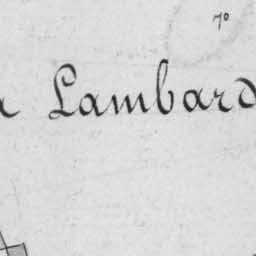 70
Lambard